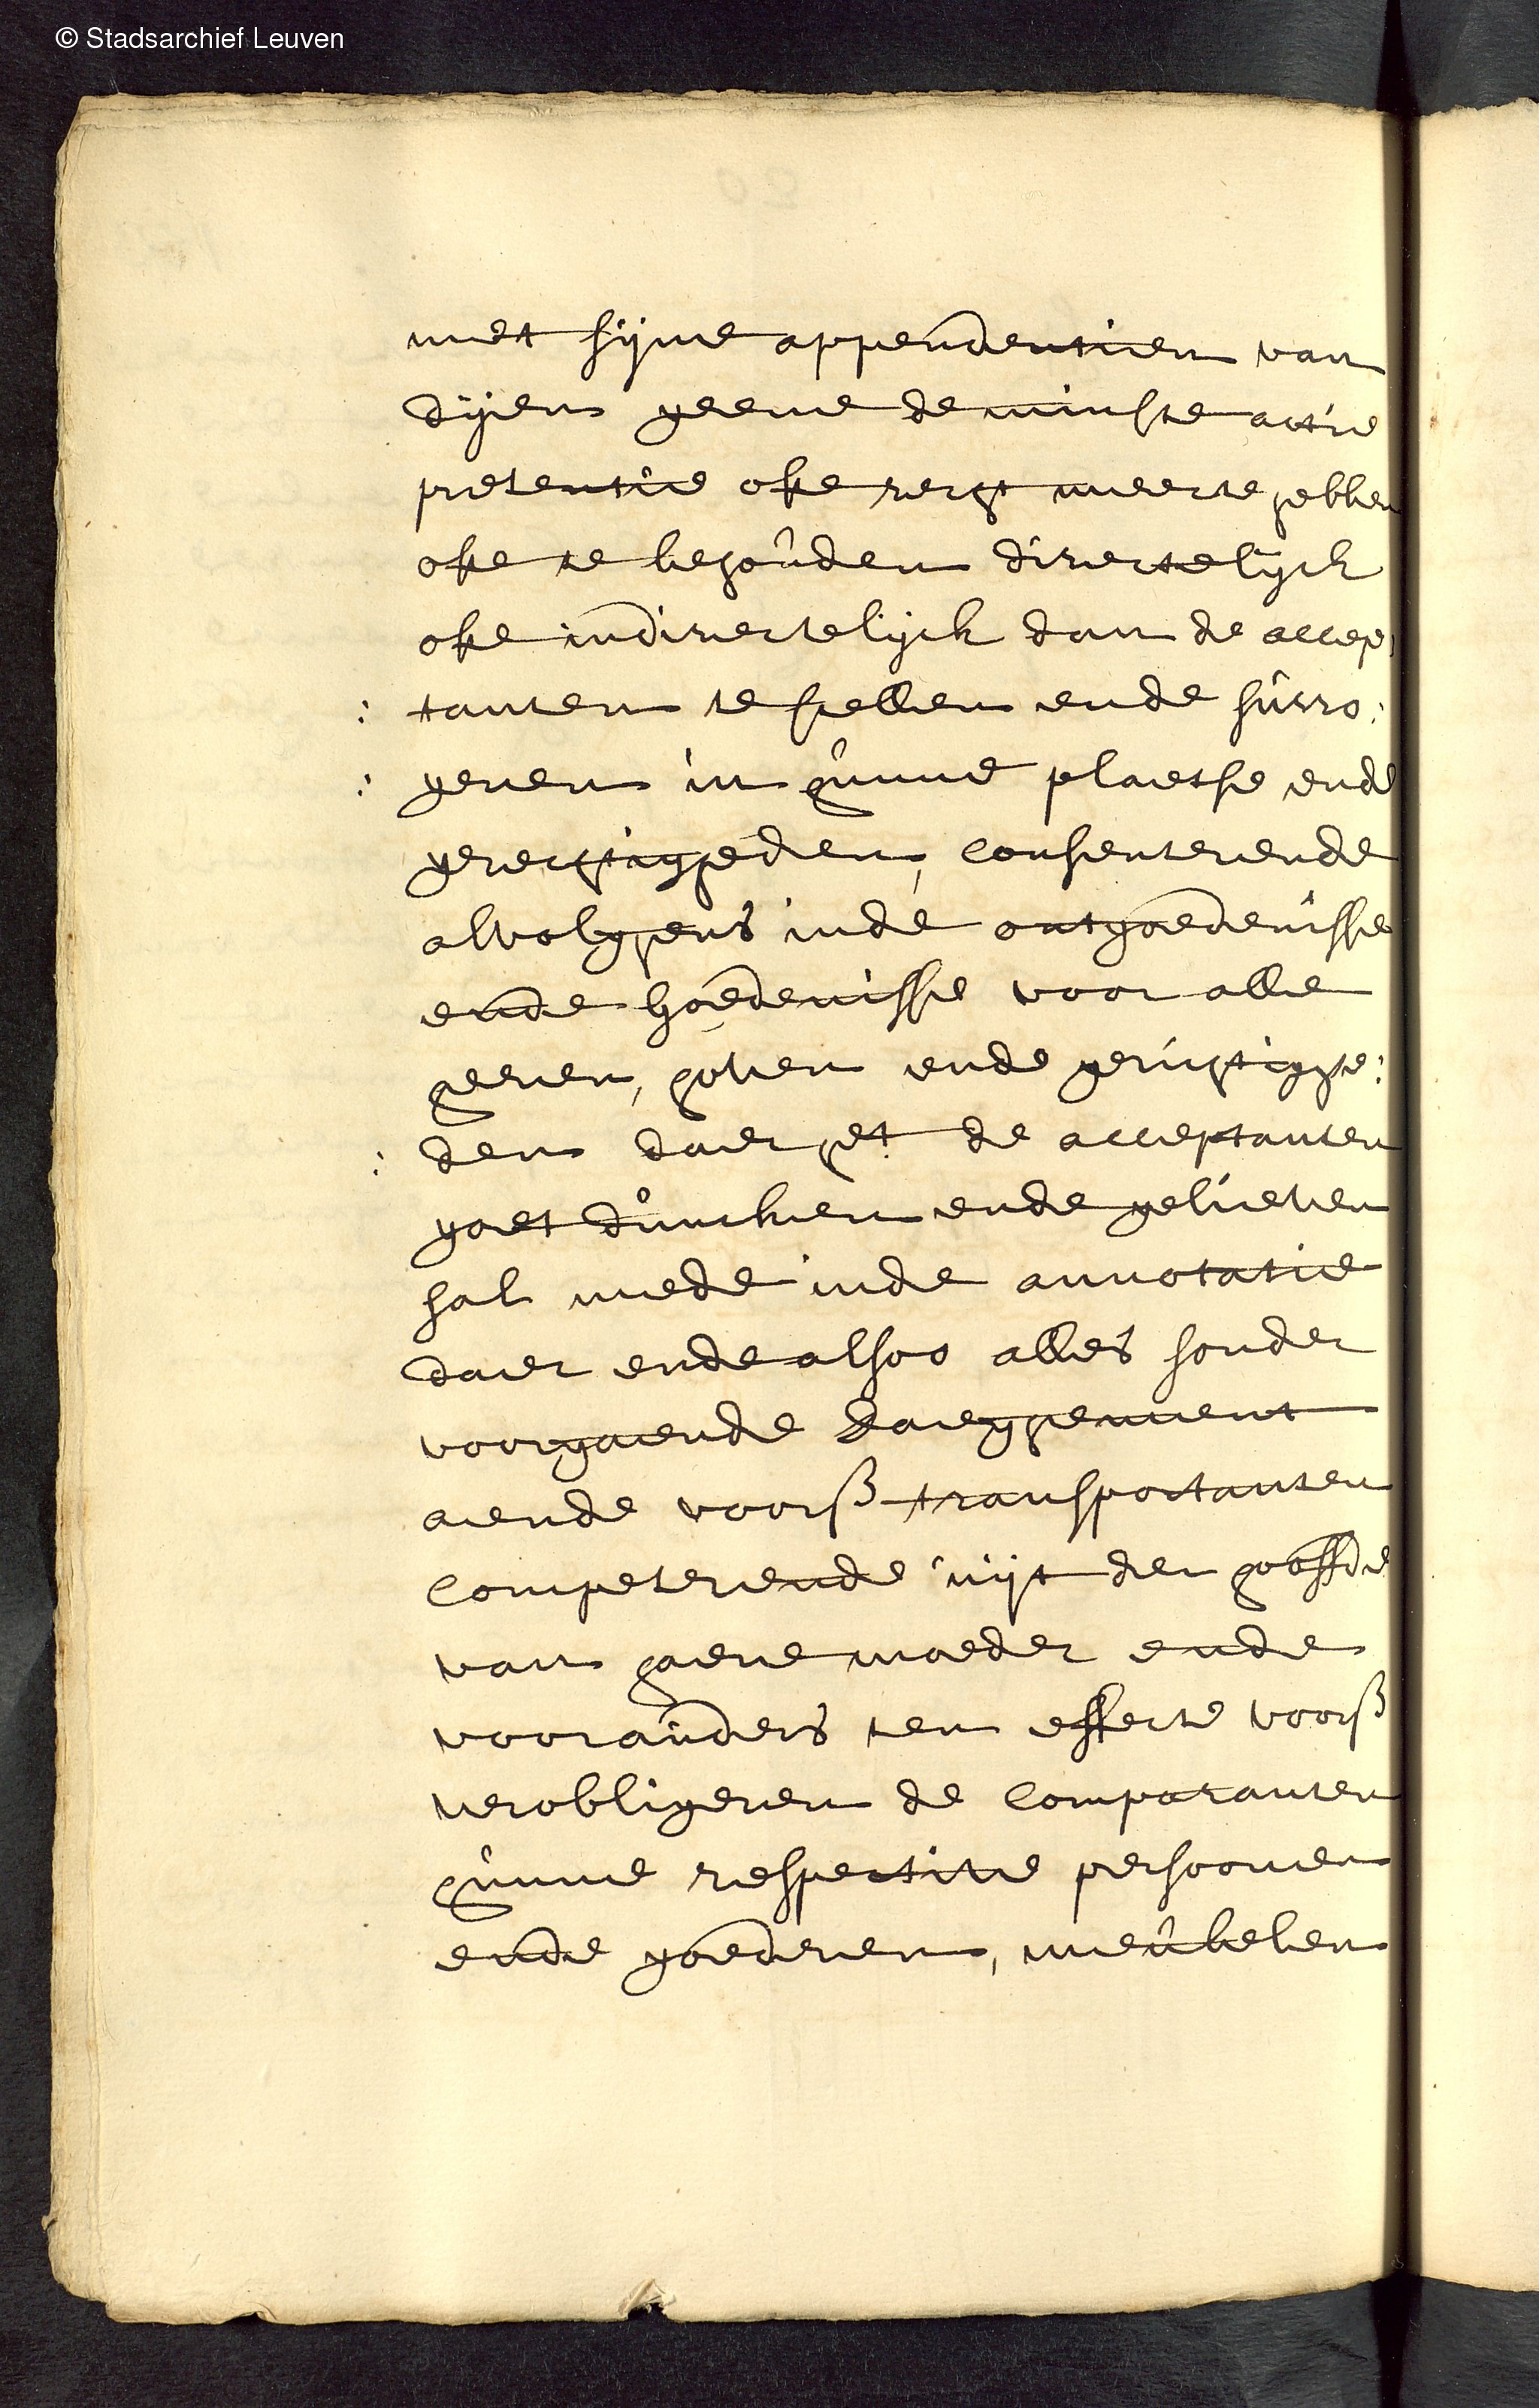 © Stadsarchief Leuven
met sijne appendentien van
dijen geene de minste actie
pretentie ofte recht meer te hebben
ofte te behouden directelijck
ofte indirectelijck dan de accep:
: tanten te stellen ende surro:
: geren in hunne plaetse ende
gerechtigheden, consenterende
alvolghens inde ontgoedenisse
ende goedenisse voor alle
heeren, hoven ende gerichtighe:
: den daer het de acceptanten
goet duncken ende gelieven
sal mede inde annotatie
daer ende alsoo alles sonder
voorgaende daeghement
aende voorß transportanten
competerende uijt den hooffde
van haere moeder ende
voorouders ten effecte voorß
verobligeren de comparanten
hunne respective persoonen
ende goederen, meubelen